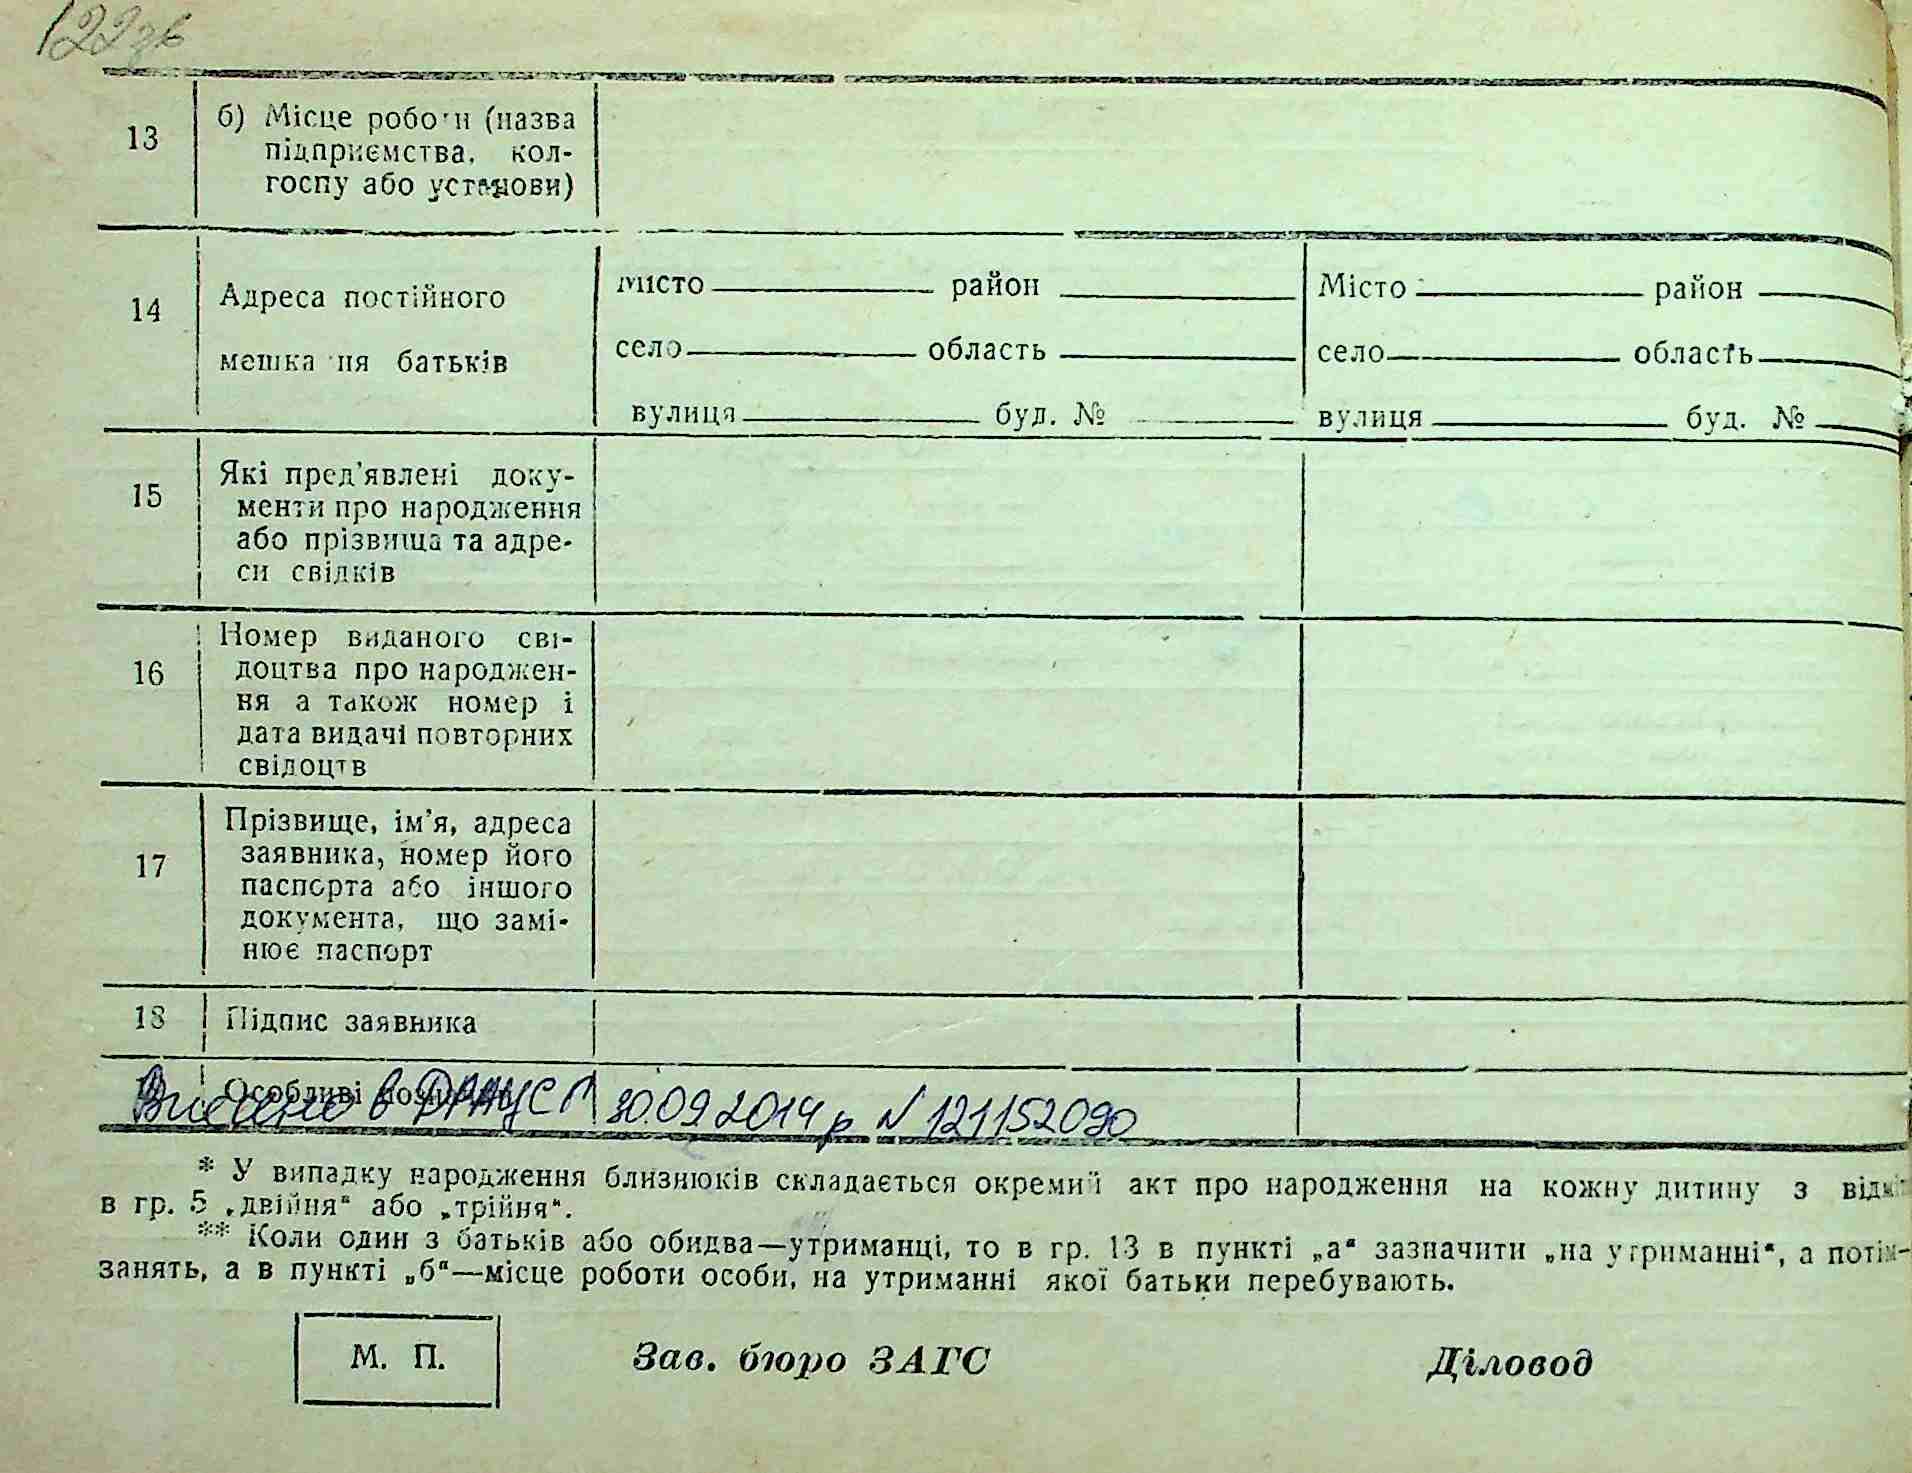 122 зв
13 б) Місце роботи (назва
підприємства, кол-
госпу або установи)
14 Адреса постійного
мешкання батьків
місто район Місто район
село область село область
вулиця буд. № вулиця буд. №
15 Які пред'явлені доку-
менти про народження
або прізвища та адре-
си свідків
16 Номер виданого сві-
доцтва про народжен-
ня а також номер і
дата видачі повторних
свідоцтв
17 Прізвище, ім'я, адреса
заявника, номер його
паспорта або іншого
документа, що замі-
нює паспорт
18 Підпис заявника
Особливі
Внесено в ДРАЦСГ 30.09.2014 р N 121152090
* У випадку народження близнюків складається окремий акт про народження на кожну дитину з
в гр. 5 „двійня“ або „трійня“.
** Коли один з батьків або обидва—утриманці, то в гр. 13 в пункті „а“ зазначити „на утриманні“, а потім-
занять, а в пункті „б“—місце роботи особи, на утриманні якої батьки перебувають.
М. П. Зав. бюро ЗАГС Діловод